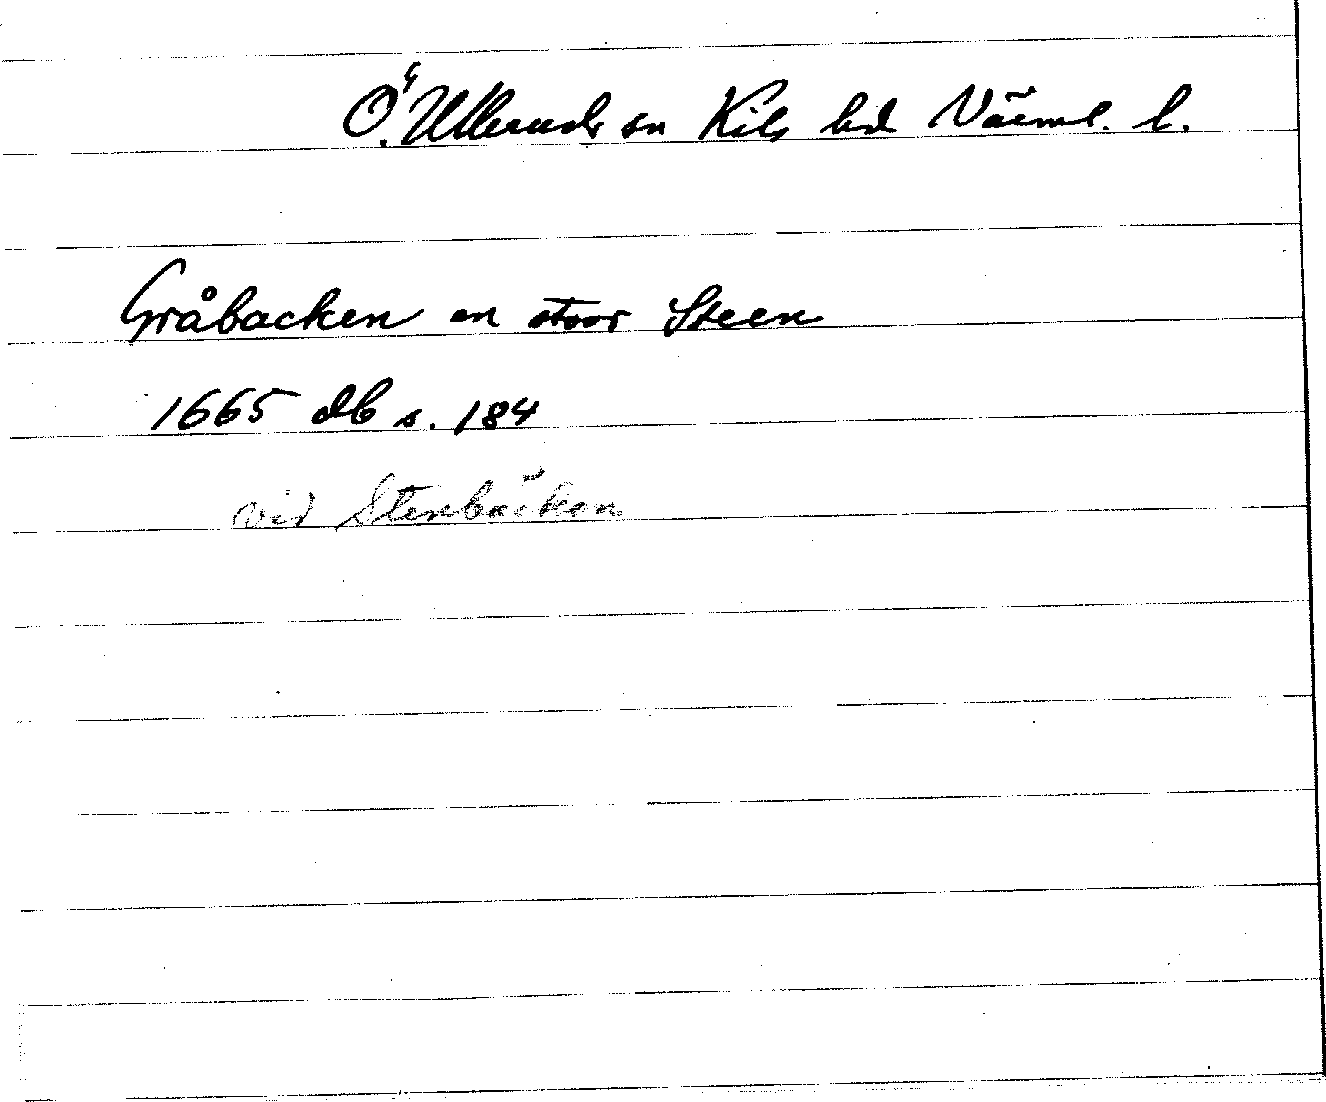 Ö. Ulleruds sn Kils hd Värml. l.
Gråbacken en stoor Steen
1665 db s. 184
vid Stenbäcken